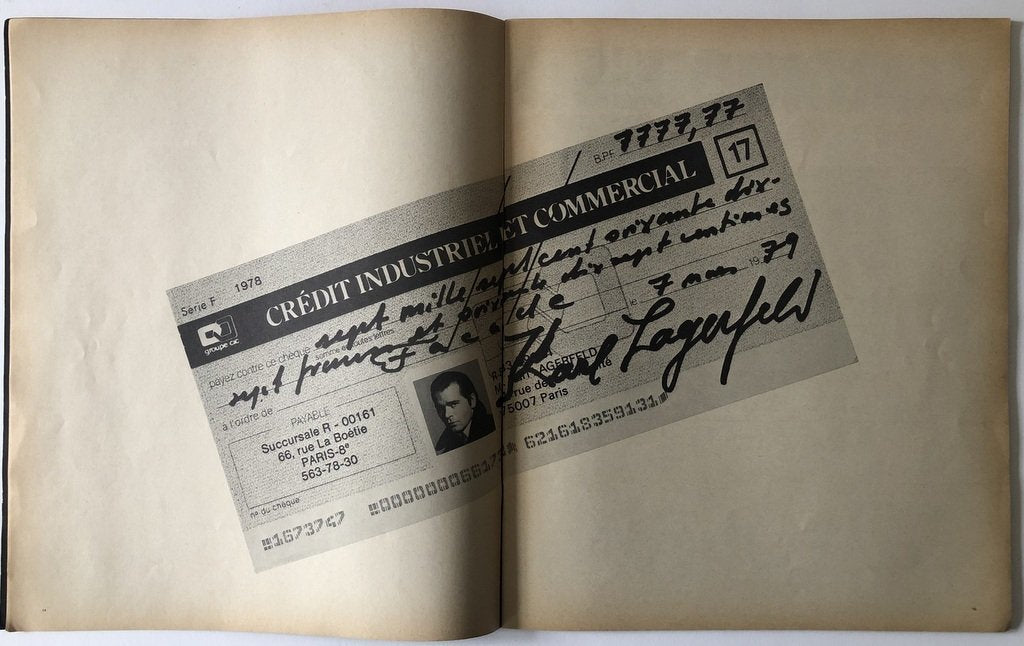 B.P.F. 7777,77
17
Série F 1978
CRÉDIT INDUSTRIEL ET COMMERCIAL
groupe CIC
payez contre ce chèque sept mille sept cent soixante dix-
somme en toutes lettres
sept francs et soixante dix sept centimes
à l'ordre de
le 7 mars 1979
Karl Lagerfeld
PAYABLE
Succursale R - 00161
66, rue La Boétie
PARIS-8e
563-78-30
LAGERFELD
rue de
75007 Paris
n° du chèque
1673747 621618359131